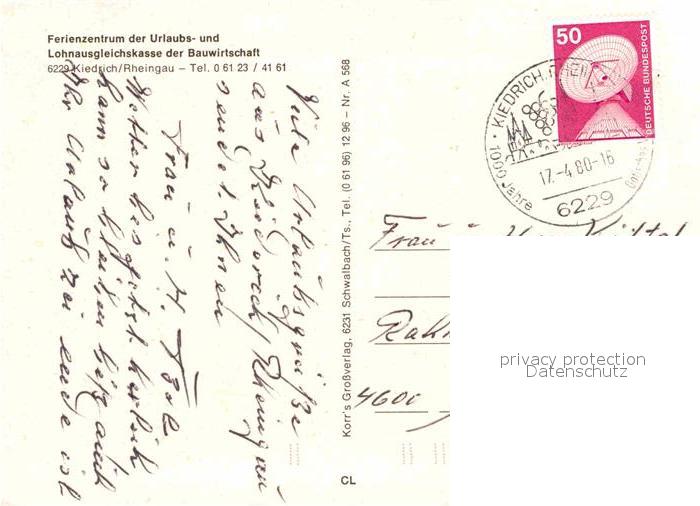 Ferienzentrum der Urlaubs- und
Lohnausgleichskasse der Bauwirtschaft
6229 Kiedrich/Rheingau – Tel. 0 61 23 / 41 61
Viele Urlaubsgrüße
aus Kiedrich/Rheingau
sendet Ihnen
Frau u. H.
Wetter ist jetzt herrlich
kann so bleiben bis auch
Ihr Urlaub zu ende ist
Korr's Großverlag, 6231 Schwalbach/Ts., Tel. (0 61 96) 12 96 – Nr. A 568
CL
50
DEUTSCHE BUNDESPOST
KIEDRICH, RHEIN
1000 Jahre
17.-4.80-16
6229
Frau
4600
privacy protection
Datenschutz